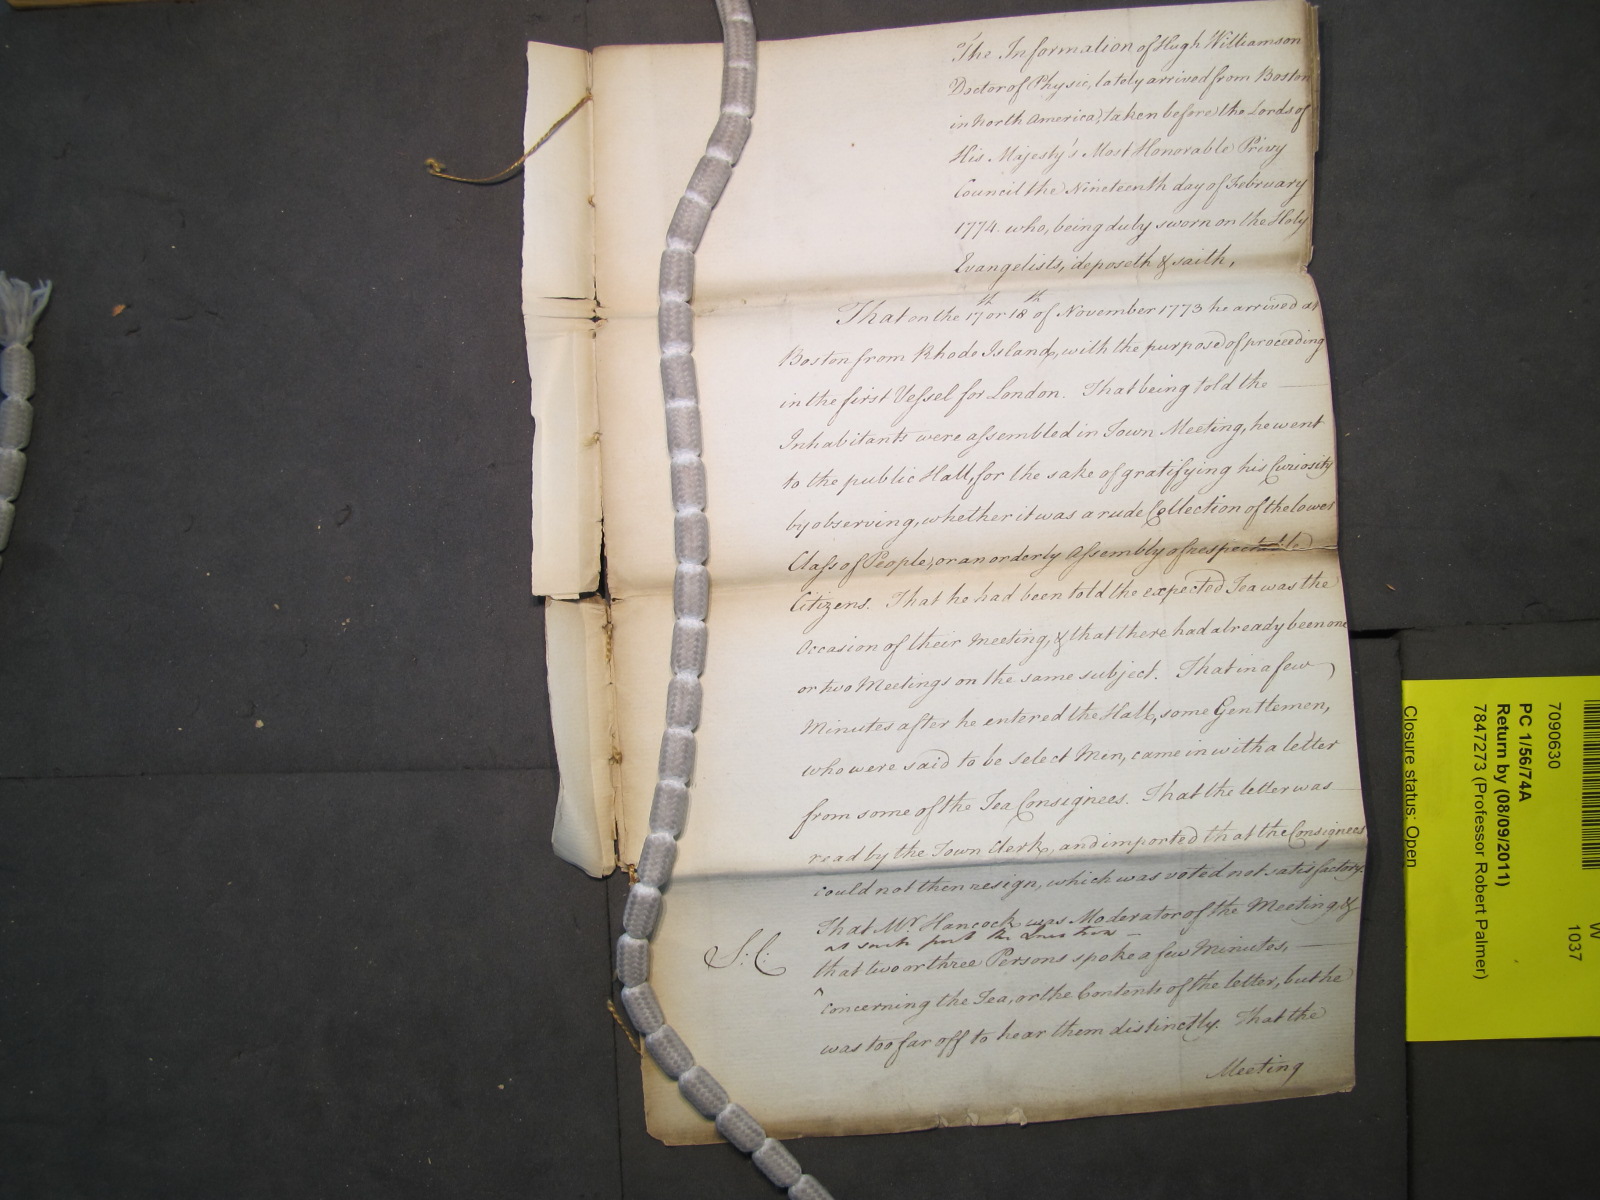 The Information of Hugh Williamson
Doctor of Physic, lately arrived from Boston
in North America, taken before the Lords of
His Majesty's Most Honorable Privy
Council the Nineteenth day of February
1774. who, being duly sworn on the Holy
Evangelists, deposeth & saith,
That on the 17th or 18th of November 1773 he arrived at
Boston from Rhode Island, with the purpose of proceeding
in the first Vessel for London. That being told the
Inhabitants were assembled in Town Meeting, he went
to the public Hall, for the sake of gratifying his Curiosity
by observing, whether it was a rude Collection of the lowest
Class of People, or an orderly Assembly of respectable
Citizens. That he had been told the expected Tea was the
Occasion of their Meeting, & that there had already been one
or two Meetings on the same subject. That in a few
Minutes after he entered the Hall, some Gentlemen,
who were said to be select Men, came in with a letter
from some of the Tea Consignees. That the letter was
read by the Town Clerk, and imported that the Consignees
could not then resign, which was voted not satisfactory.
That Mr. Hancock was Moderator of the Meeting, &
as such put the Question
S: C:
that two or three Persons spoke a few Minutes,
^
concerning the Tea, or the Contents of the letter, but he
was too far off to hear them distinctly. That the
Meeting
W
1037
7090630
PC 1/56/74A
Return by (08/09/2011)
7847273 (Professor Robert Palmer)
Closure status: Open